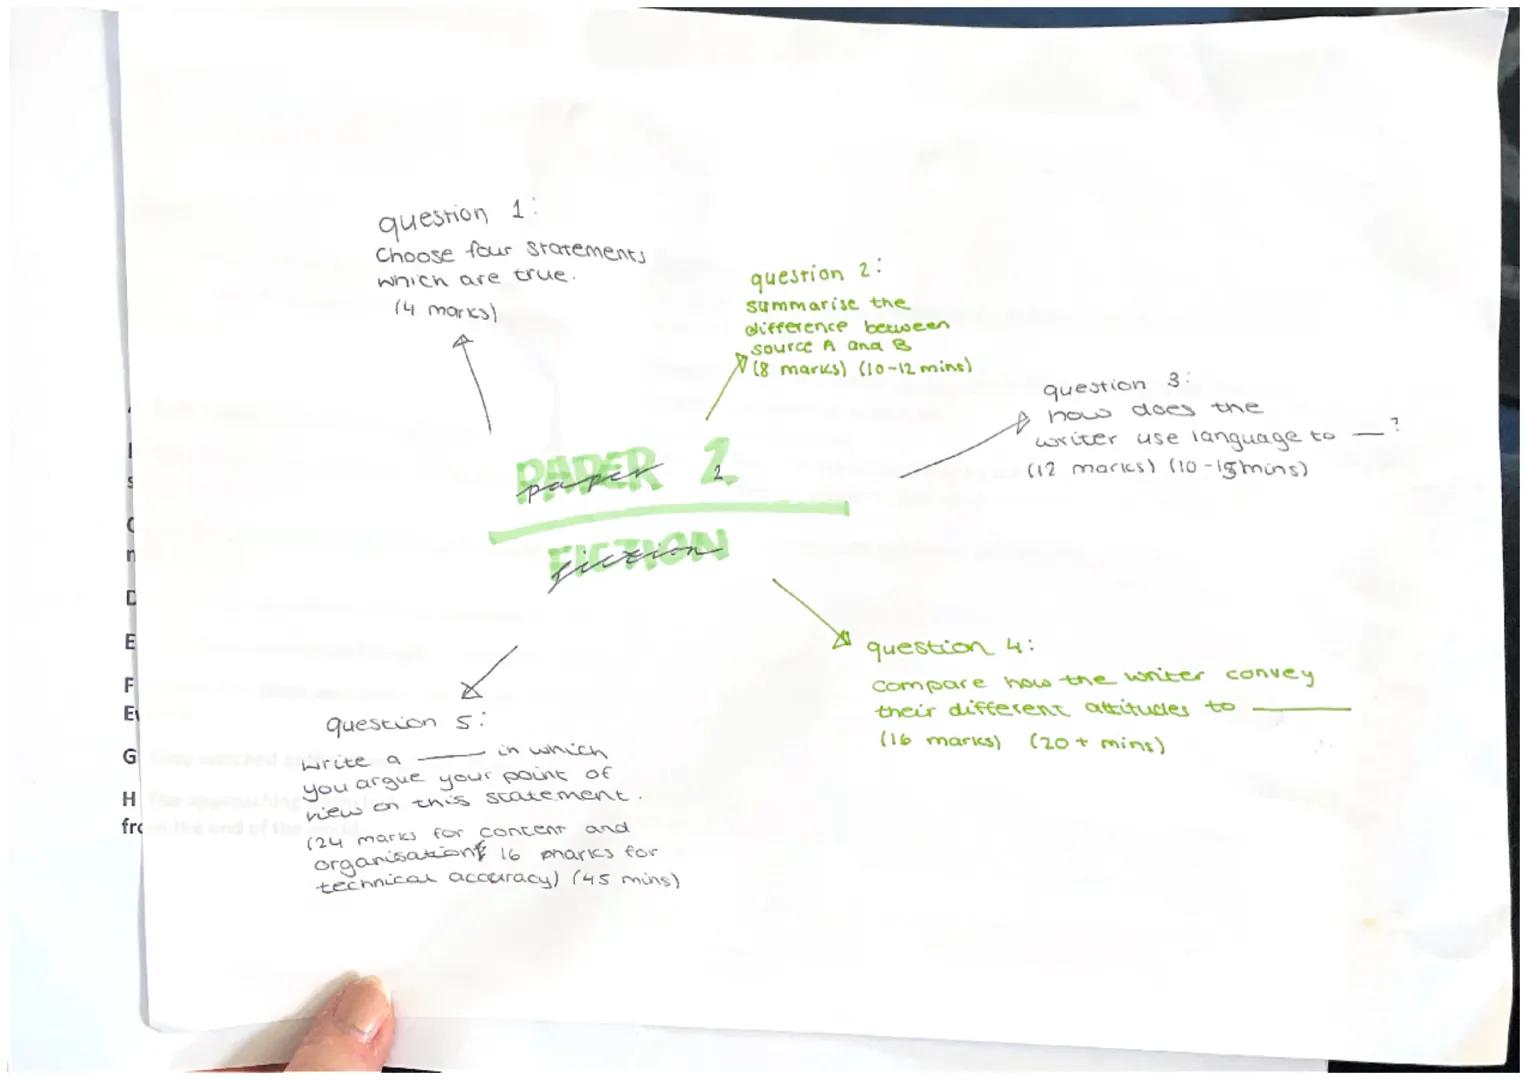 question 1:
Choose four statements
which are true.
(4 marks)
question 2:
summarise the
difference between
source A and B
(8 marks) (10-12 mins)
question 3:
how does the
writer use language to __?
(12 marks) (10-15mins)
PAPER 2
paper 2
FICTION
fiction
question 4:
compare how the writer convey
their different attitudes to ____
(16 marks) (20+ mins)
question 5:
write a ___ in which
you argue your point of
view on this statement.
(24 marks for content and
organisation & 16 marks for
technical accuracy) (45 mins)
E
F
G
H
fro